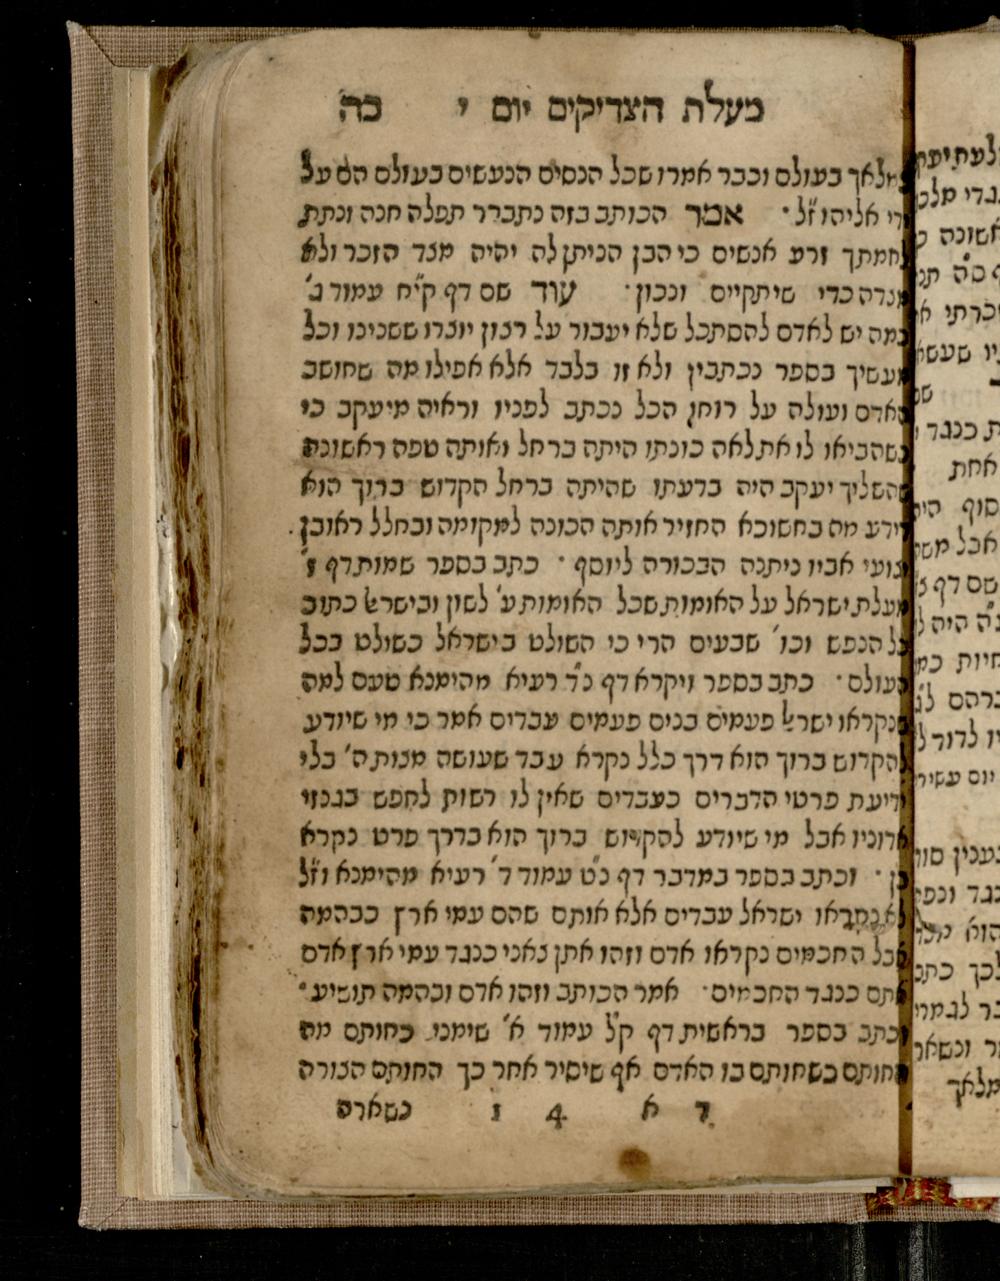 מעלת הצדיקים יום י כה
מלאך בעולם וכבר אמרו שכל הנסים הנעשים בעולם הם על
ידי אליהו ז"ל· אמר הכותב בזה נתברר תפלה חנה ונתת
לאמתך זרע אנשים כי הבן הניתן לה יהיה מצד הזכר ולא
מצדה כדי שיתקיים ונכון· עוד שם דף קי"ח עמוד ב'
כמה יש לאדם להסתכל שלא יעבור על רצון יוצרו ששנינו וכל
מעשיך בספר נכתבין ולא זו בלבד אלא אפילו מה שחושב
האדם ועולה על רוחו הכל נכתב לפניו וראיה מיעקב כי
כשהביאו לו את לאה כונתו היתה ברחל ואותה טפה ראשונה
שהשליך יעקב היה בדעתו שהיתה ברחל הקדוש ברוך הוא
דידע מה בחשוכא החזיר אותה הכונה למקומה ובחלל ראובן
יצועי אביו ניתנה הבכורה ליוסף· כתב בספר שמות דף ו'
מעלת ישראל על האומות שכל האומות ע' לשון ובישראל כתוב
כל הנפש וכו' שבעים הרי כי השולט בישראל כשולט בכל
העולם· כתב בספר ויקרא דף כ"ד רעיא מהימנא טעם למה
שנקראו ישראל פעמים בנים פעמים עבדים אמר כי מי שיודע
להקדוש ברוך הוא דרך כלל נקרא עבד שעושה מצות ה' בלי
ידיעת פרטי הדברים כעבדים שאין לו רשות לחפש בגנזי
אדוניו אבל מי שיודע להקדוש ברוך הוא בדרך פרט נקרא
בן· וכתב בספר במדבר דף כ"ט עמוד ד' רעיא מהימנא וז"ל
לא נקראו ישראל עבדים אלא אותם שהם עמי ארץ כבהמה
אבל החכמים נקראו אדם וזהו אתן צאני כנגד עמי ארץ אדם
אתם כנגד החכמים· אמר הכותב וזהו אדם ובהמה תושיע·
וכתב בספר בראשית דף ק"ל עמוד א' שימני כחותם מה
החותם כשחותם בו האדם אף שיסיר אחר כך החותם הצורה
ד א 4 1 נשארה